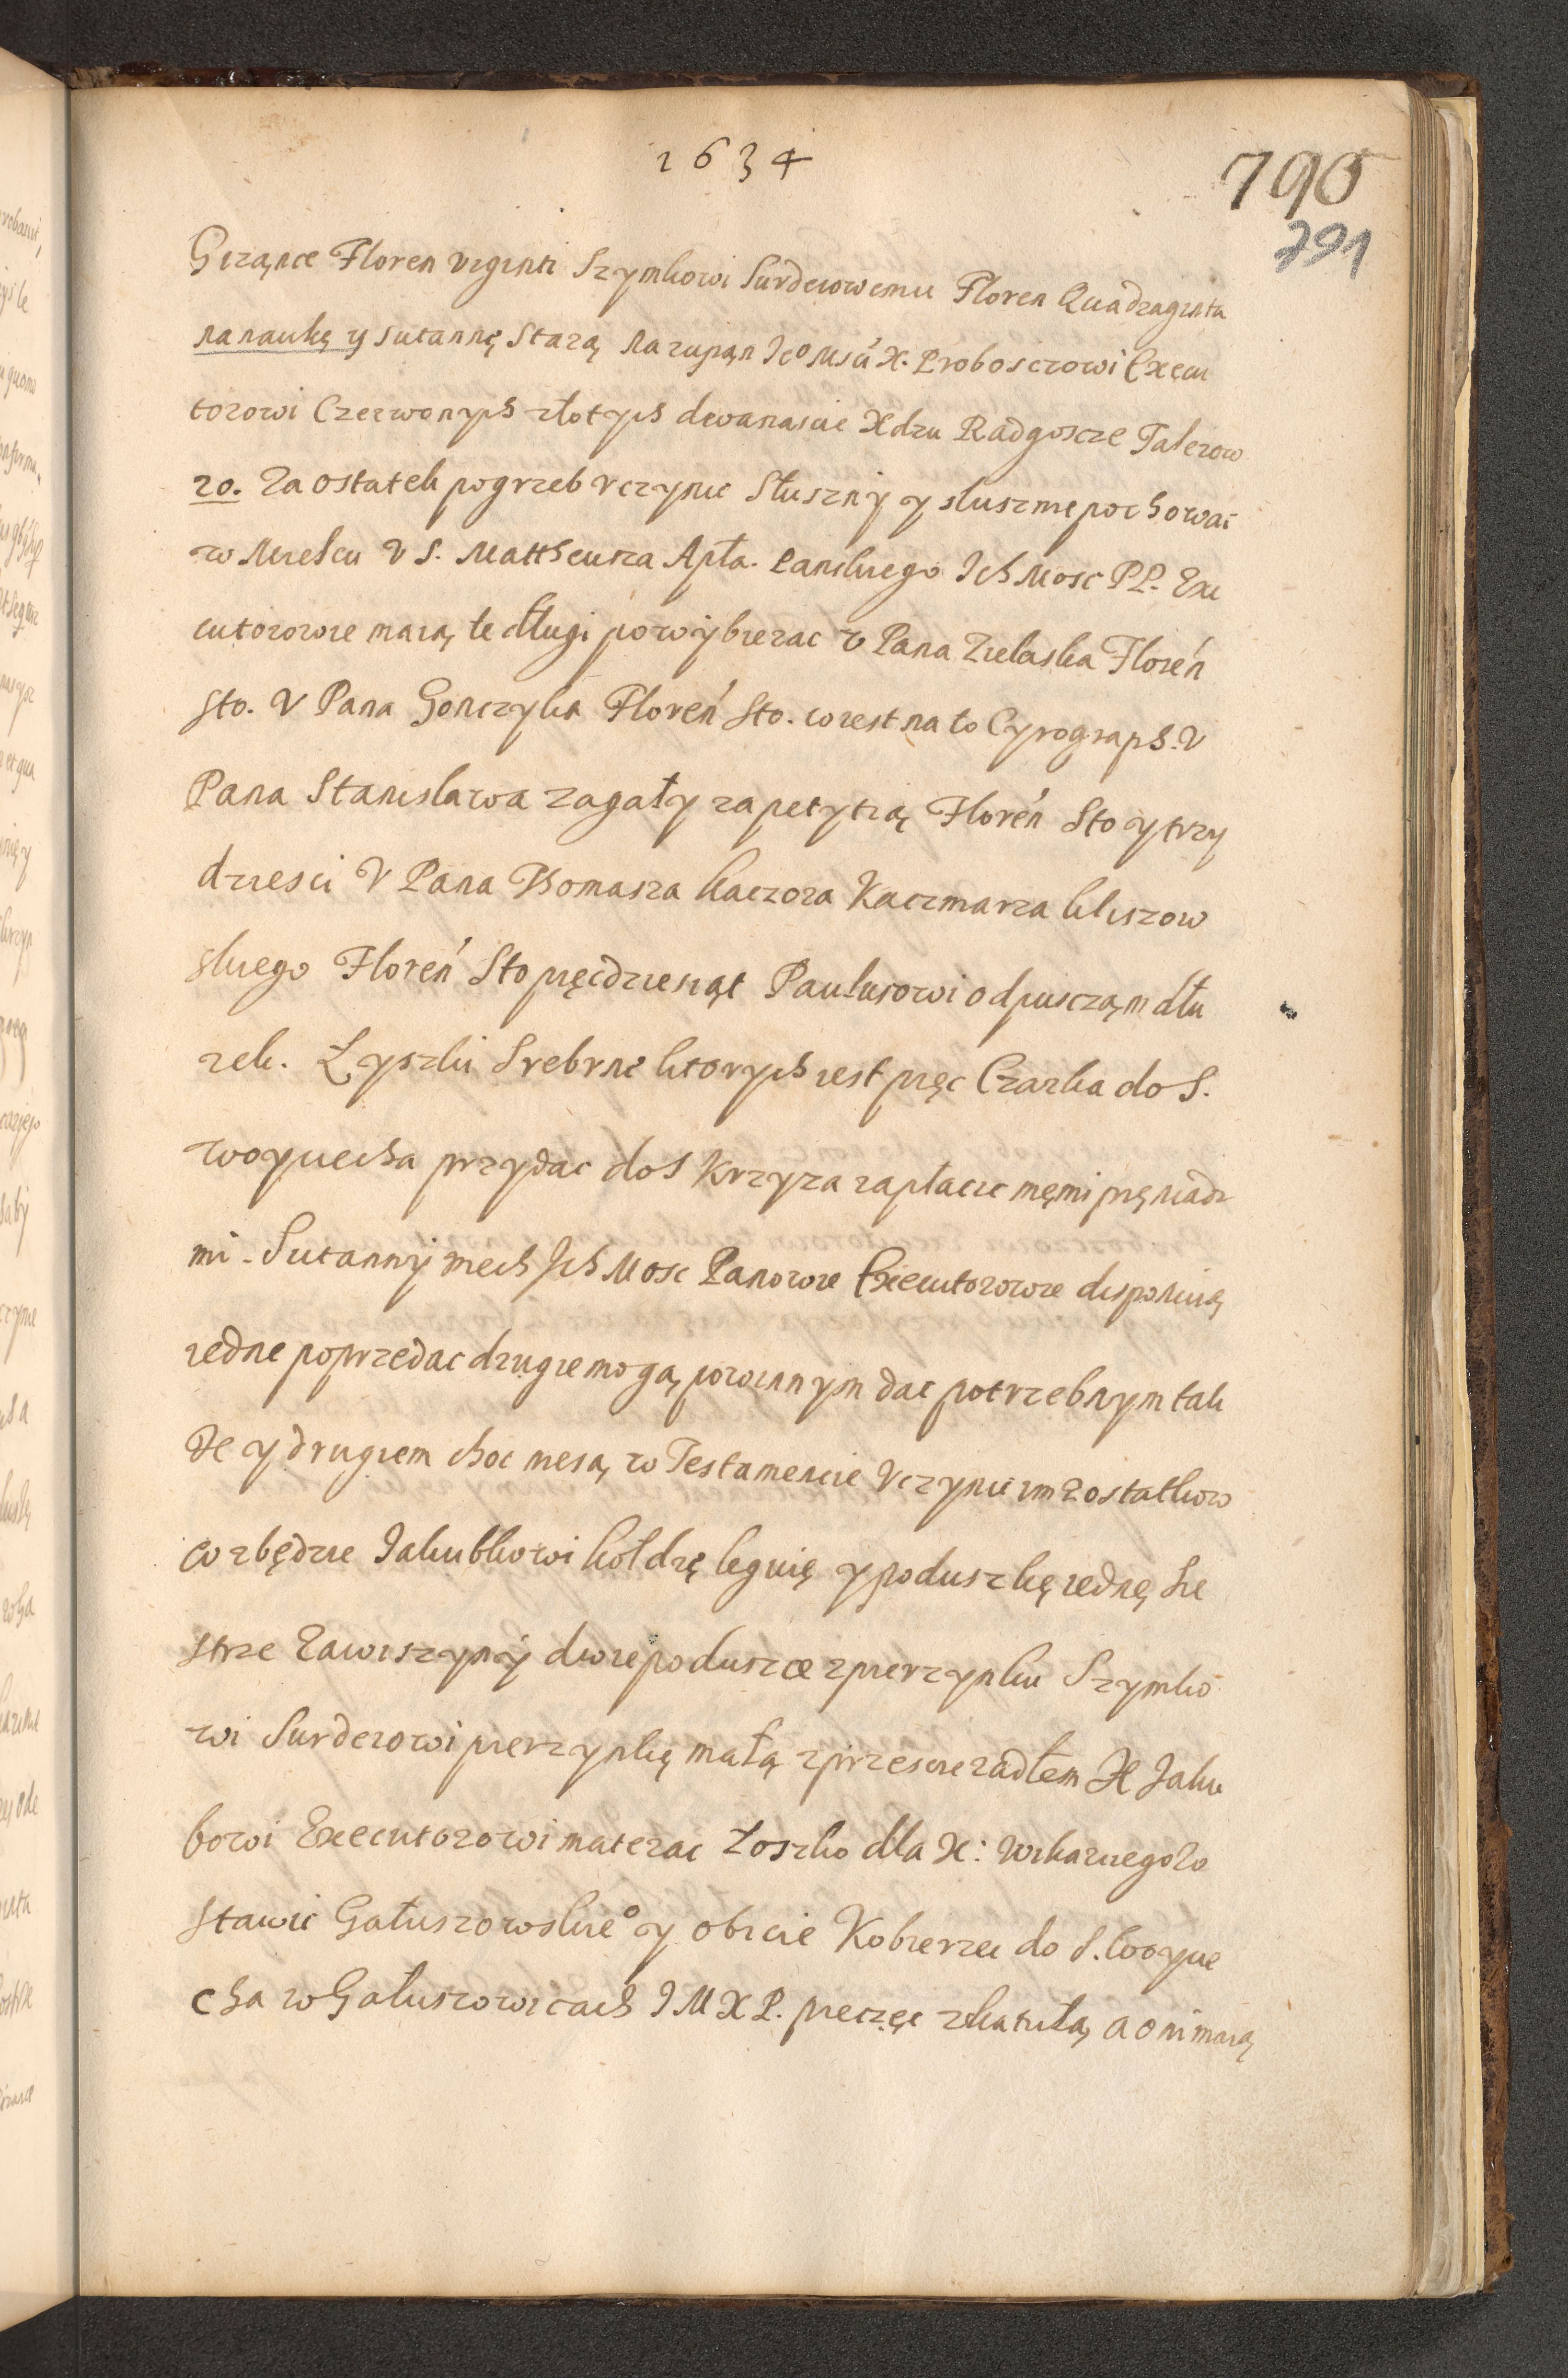 1634
790
791
Giząnce Floren viginti Szymkowi Surdeiowemu Floren Quadraginta
na naukę y sutannę Starą na zupąn Jeo Msci X. Proboszczowi Execu
torowi Czerwonych złotych dwanascie Xdzu Radgoscze Talerow
20. Za ostatek pogrzeb vczynic Słuszny y słusznie pochowac
w Mielcu V S. Mattheusza Apła. Panskiego Ich Mosc PP. Exe
cutorowie maią te długi powybierac v Pana Zielaska Floren
sto. V Pana Gonczyka Floren sto. iest na to Cyrograph. V
Pana Stanislawa zagały za petytią Floren Sto y trzy
dziesci V Pana Thomasza kaczora Kaczmarza kliszow
skiego Floren Sto pięcdziesiąt Paulusowi odpusczam dłu
zek. Łyszki Srebrne ktorych iest pięc Czarka do S.
woyciecha przydac do S Krzyza zapłacic męmi pięniadz
mi. Sutanny niech Ich Mosc Panowie Executorowie disponuią
iedne poprzedac drugie mogą powinnym dac potrzebnym tak
ze y drugiem choc niesą w Testamencie Vczynic im z ostatkow
co zbędzie Jakubkowi kołdrę legnię y poduszkę iednę Sie
strze Zawiszyny dwie poduszce z pierzynku Szymko
wi Surdeiowi pierzynkę małą z przescieradłem X Jaku
bowi Executorowi materac Łoszko dla X: wikariego zo
stawic Gałuszowskieo y obicie Kobierzec do S. Woycie
cha w Gałuszowicach J M X P. pieczęc z katułą a oni maią